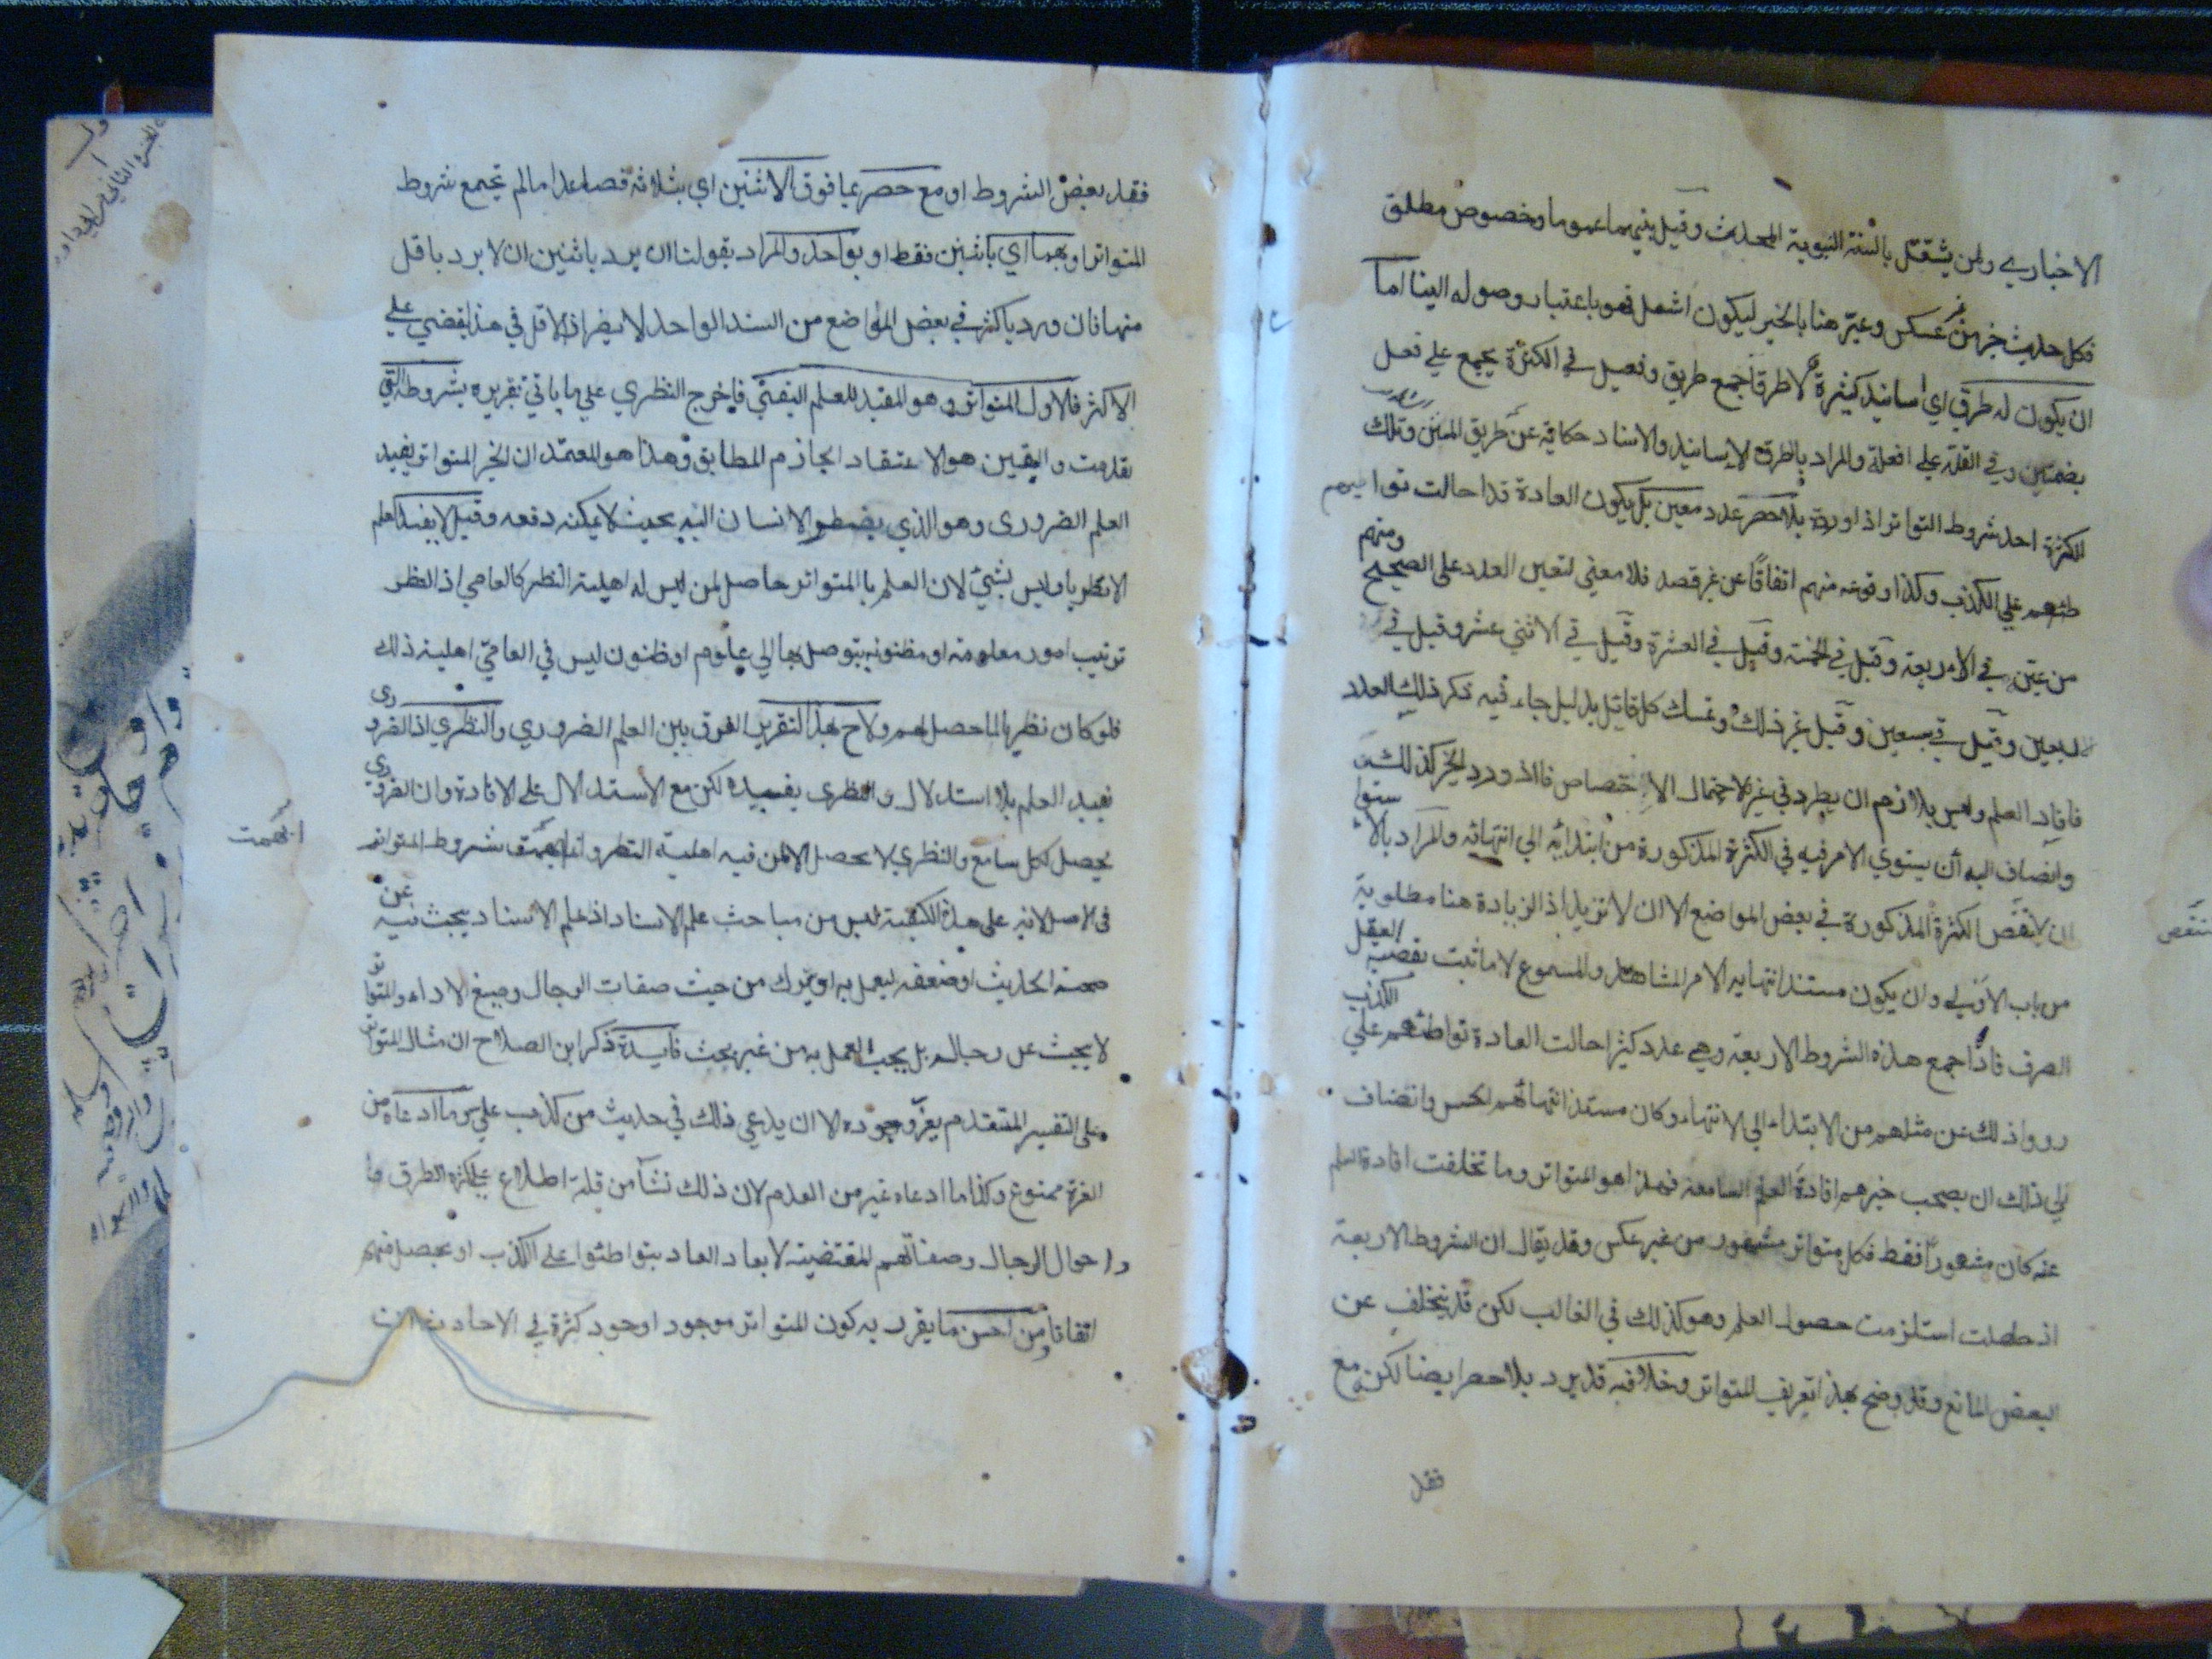 الاخباري ولمن يشتغل بالسنة النبوية المحدث وقيل بينهما عموما وخصوص مطلق
فكل حديث خبر من غير عكس وعبر هنا بالخبر ليكون اشمل فهو باعتبار وصوله الينا اما
ان يكون له طرق اي اسانيد كثيرة لان طرقا جمع طريق وفعيل في الكثرة يجمع على فعل
بضمتين وفي القلة على افعلة والمراد بالطرق الاسانيد والاسناد حكاية عن طريق المتن وتلك
الكثرة احد شروط التواتر اذا وردت بلا حصر عدد معين بل يكون العادة قد احالت تواطيهم
طئهم على الكذب وكذا وقوعه منهم اتفاقا عن غير قصد فلا معنى لتعين العدد على الصحيح ومنهم
من عينه في الاربعة وقيل في الخمسة وقيل في العشرة وقيل في الاثني عشر وقيل في
الاربعين وقيل في سبعين وقيل غير ذلك وتمسك كل قائل بدليل جاء فيه ذكر ذلك العدد
فافاد العلم وليس بلازم ان يطرد في غيره لاحتمال الاختصاص فااذ ورد الخبر كذلك
وانضاف اليه أن يستوي الامر فيه في الكثرة المذكورة من ابتدائه الى انتهائه والمراد بالاستوا
ان لا تنقص الكثرة المذكورة في بعض المواضع لا ان لا تزيد اذ الزيادة هنا مطلوبة
تنقص
من باب الاولى وان يكون مستند انتهايه الامر المشاهد والمسموع لا ما ثبت بقضية العقل
الصرف فاذا جمع هذه الشروط الاربعة وهي عدد كثير احالت العادة تواطئهم على الكذب
رووا ذلك عن مثلهم من الابتداء الى الانتهاء وكان مستند انتهائهم الحس وانضاف
الى ذلك ان يصحب خبرهم افادة العلم لسامعه فهذا هو المتواتر وما تخلفت افادة العلم
عنه كان مشهورا فقط فكل متواتر مشهور من غير عكس وقد يقال ان الشروط الاربعة
اذ حصلت استلزمت حصول العلم وهو كذلك في الغالب لكن قد يتخلف عن
البعض لمانع وقد وضح بهذا تعريف المتواتر وخلافه قد يرد بلا حصر ايضا لكن مع
فقد
فقد بعض الشروط او مع حصر بما فوق الاثنين اي بثلاثة فصاعدا ما لم تجمع شروط
المتواتر او بهما اي باثنين فقط او بواحد والمراد بقولنا ان يرد باثنين ان لا يرد باقل
منهما فان ورد باكثر في بعض المواضع من السند الواحد لا يضر اذ الاقل في هذا يقضي على
الاكثر فالاول المتواتر وهو المفيد للعلم اليقيني فاخرج النظري على ما ياتي تقريره بشروطه التي
تقدمت واليقين هو الاعتقاد الجازم المطابق وهذا هو المعتمد ان الخبر المتواتر يفيد
العلم الضروري وهو الذي يضطر الانسان اليه بحيث لا يمكنه دفعه وقيل لا يفيد العلم
الا نظريا وليس بشئ لان العلم باالمتواتر حاصل لمن ليس له اهلية النظر كالعامي اذ النظر
ترتيب امور معلومة او مظنونة يتوصل بها الى علوم او ظنون ليس في العامي اهلية ذلك
فلو كان نظريا لما حصل لهم ولاح بهذا التقرير الفرق بين العلم الضروري والنظري اذ الضرورى
يفيد العلم بلا استدلال والنظري يفيده لكن مع الاستدلال على الافادة وان الضروري
يحصل لكل سامع والنظري لا يحصل الا لمن فيه اهلية النظر وانما ابهمت شروط المتواتر
ابهمت
في الاصل لانه على هذه الكيفية ليس من مباحث علم الاسناد اذ علم الاسناد يبحث فيه عن
صحة الحديث او ضعفه ليعمل به او يترك من حيث صفات الرجال وصيغ الاداء والمتواتر
لا يبحث عن رجاله بل يجب العمل به من غير بحث فايدة ذكر ابن الصلاح ان مثال المتواتر
على التفسير المتقدم يعز وجوده الا ان يدعي ذلك في حديث من كذب علي وما ادعاه من
العزة ممنوع وكذا ما ادعاه غيره من العدم لان ذلك نشأ من قلة اطلاع على كثرة الطرق
واحوال الرجال وصفاتهم المقتضية لابعاد العاد يتواطئوا على الكذب او يحصل منهم
اتفاقا ومن احسن ما يقرر به كون المتواتر موجود اوجود كثرة في الاحاديث